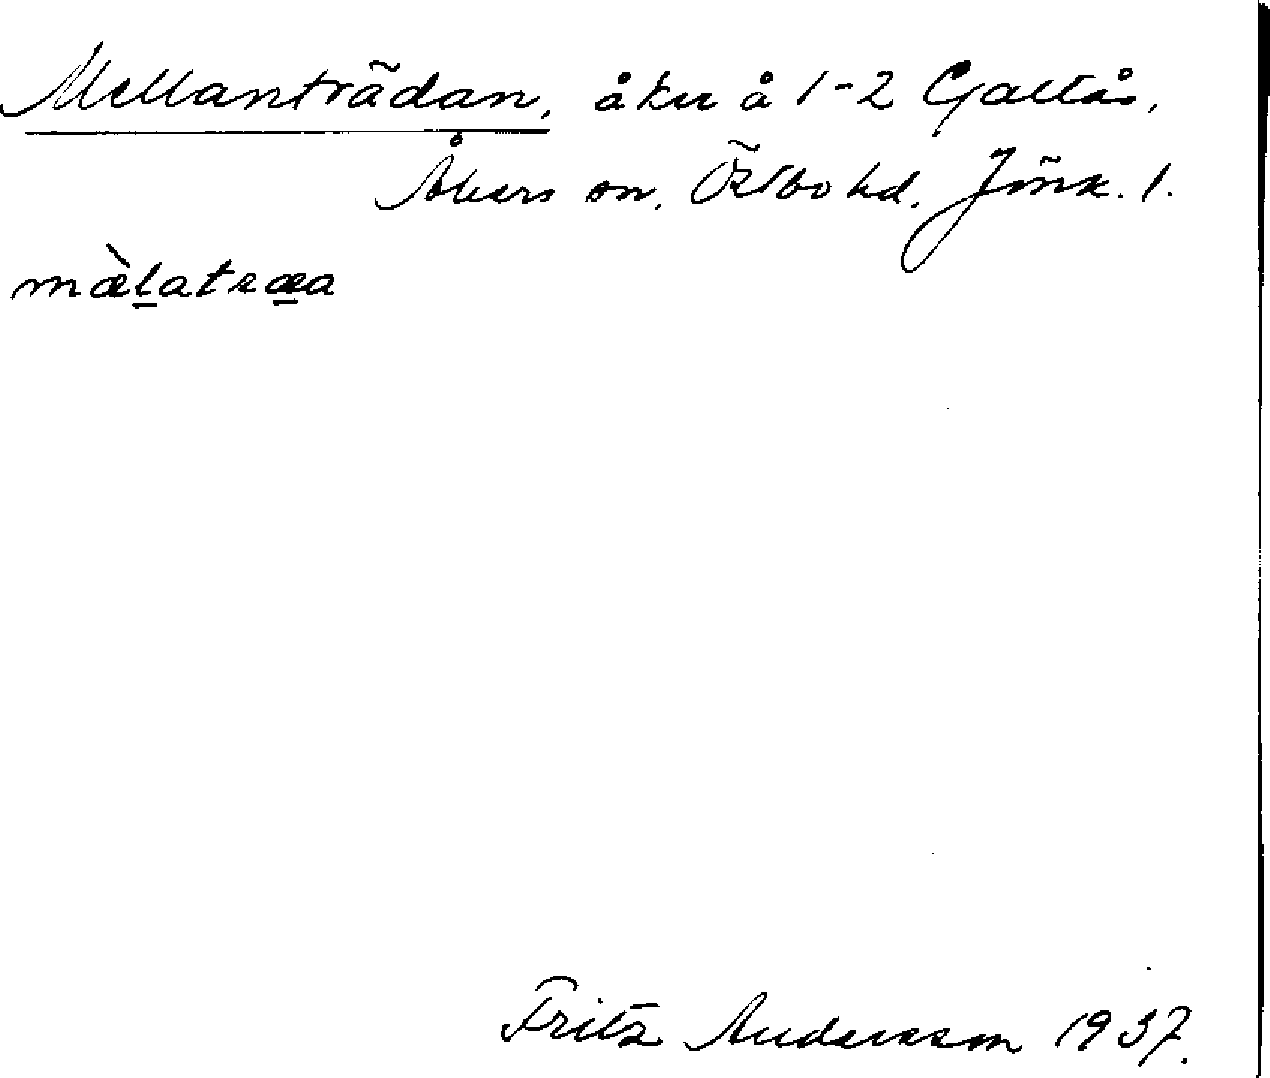 Mellanträdan, åker å 1-2 Galtås,
Åkers sn, Östbo hd. Jönk. l.
mæ̀l̲atræ̲a
Fritz Andersson 1937.